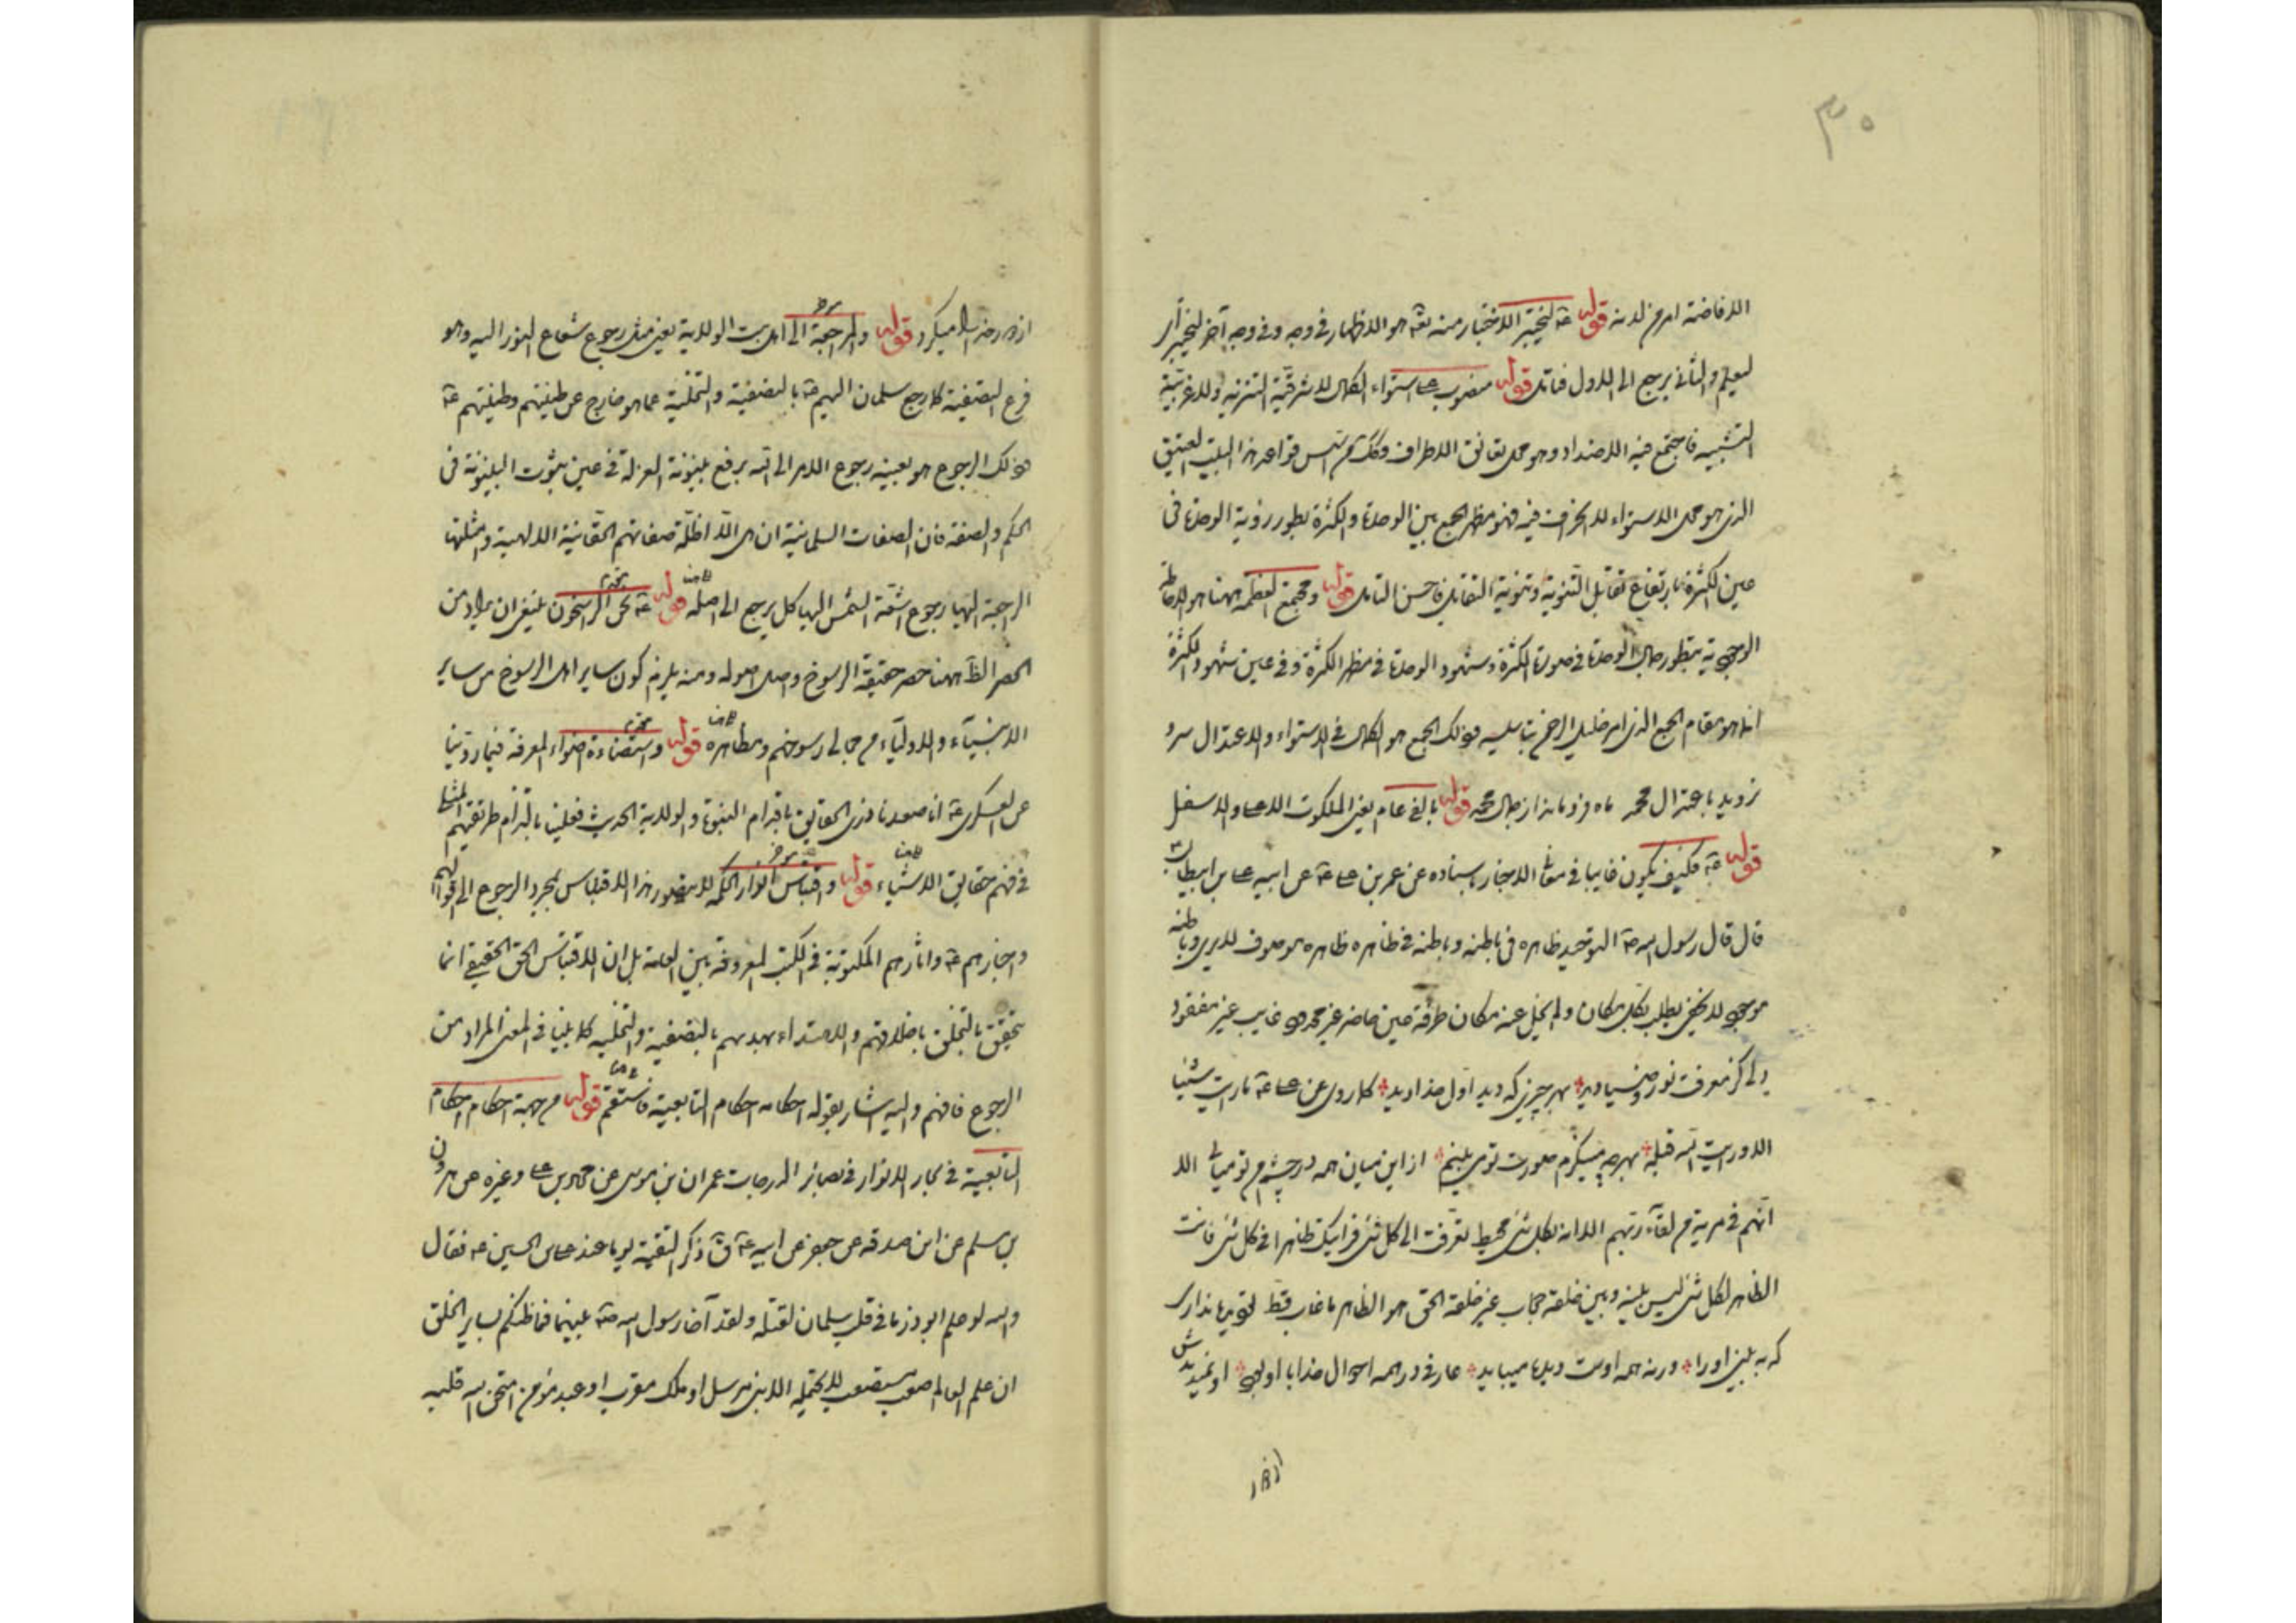 ۳۰
الافاضة امر من لدنه قوله عه لنختبر الاختبار منه تعه هو الاظهار فى وجه وفى وجه آخر لنختبر اى
ليعلم والثانى يرجع الى الاول فتامل قوله منصوب على استواء الكمال لا شرقية التنزيه ولا غربية
التشبيه فاجتمع فيه الاضداد وهو محل تعانق الاطراف قواعد هذا البيت العتيق
الذى هو محل الاستواء لا انحراف فيه فهو مظهر الجمع بين الوحدة والكثرة بطور رؤية الوحدة فى
عين الكثرة بارتفاع تقابل الثنوية وثنوية التقابل فاحسن التامل قوله ومجتمع العظمة ههنا هو الاحاطة
الوجودية بطور جمال الوحدة فى صورة الكثرة وشهود الوحدة فى مظهر الكثرة وفى عين شهود الكثرة
انه هو مقام الجمع الذى وذلك الجمع هو الكمال فى الاستواء والاعتدال سرو
نرويد باعتدال محمد ماه فرو ماند از جمال محمد قوله بالف عام يعنى الملكوت الاعلى والاسفل
قوله عه فكيف يكون غايبا فى معانى الاخبار باسناده عن عمر بن على عه عن ابيه على بن ابيطالب
قال قال رسول الله صه التوحيد ظاهره فى باطنه وباطنه فى ظاهره ظاهره موصوف لا يرى وباطنه
موجود لا يخفى يطلب بكل مكان ولم يخل عنه مكان طرفة عين حاضر غير محدود غايب غير مفقود
دلى كز معرفت نور وصفا ديد بهر چيزى كه ديد اول خدا ديد كما روى عن على عه ما رايت شيئا
الا ورايت الله قبله بهر چه مينگرم صورت تو مى بينم از اين ميان همه در چشم من تو ميآئى الا
انهم فى مرية من لقاء ربهم الا انه بكل شئ محيط تعرفت الى كل شئ فرايتك ظاهرا فى كل شئ فانت
الظاهر لكل شئ ليس بينه وبين خلقه حجاب غير خلقه الحق هو الظاهر ما غاب قط تو ديده ندارى
كه به بينى او را ورنه همه اوست ديده ميبايد عارف در همه احوال خدا با او بود او نميديدش
از دور خدايا ميكرد قوله والمراجعة الى اهل بيت الولاية يعنى مثل رجوع شعاع النور اليه وهو
فرع التصفية كما رجع سلمان اليهم عه بالتصفية والتخلية عما هو خارج عن طينتهم وطينتهم عه
وذلك الرجوع هو بعينه رجوع الامر الى الله برفع بينونة العزلة فى عين ثبوت البينونة فى
الحكم والصفة فان الصفات السلمانية ان هى الا اظلة صفاتهم الحقانية الالهية وامثلتها
الراجعة اليها رجوع اشعة الشمس اليها كل يرجع الى اصله قوله عه نحن الراسخون ينبغى ان يراد من
الحصر الظاهر ههنا حصر حقيقة الرسوخ واصل اصوله ومنه يلزم كون ساير اهل الرسوخ من ساير
الانبياء والاولياء من مجالى رسوخهم ومظاهره قوله واستضاءة اضواء المعرفة فيما روينا
عن العسكرى عه انا صعدنا ذرى الحقايق باقدام النبوة والولاية الحديث فعلينا بالتزام طريقتهم المثلى
فى فهم حقايق الاشياء قوله واقتباس انوار الحكمة لا يتصور هذا الاقتباس بمجرد الرجوع الى اقوالهم
واخبارهم عه وآثارهم المكتوبة فى الكتب المعروفة بين العامة بل ان الاقتباس الحق الحقيقى انما
يتحقق بالتخلق باخلاقهم والاهتداء بهديهم بالتصفية والتخلية كما بينا فى المعنى المراد من
الرجوع فافهم واليه اشار بقوله احكامه احكام التابعية فاستقم قوله من جهة احكام احكام
التابعية فى بحار الانوار فى بصائر الدرجات عمران بن موسى عن محمد بن على وغيره عن هرون
بن مسلم عن ابن صدقه عن جعفر عن ابيه عه قال ذكر التقية يوما عند على بن الحسين عه فقال
والله لو علم ابوذر ما فى قلب سلمان لقتله ولقد آخا رسول الله صه بينهما فما ظنكم بساير الخلق
ان علم العالم صعب مستصعب لا يحتمله الا نبى مرسل او ملك مقرب او عبد مؤمن امتحن الله قلبه